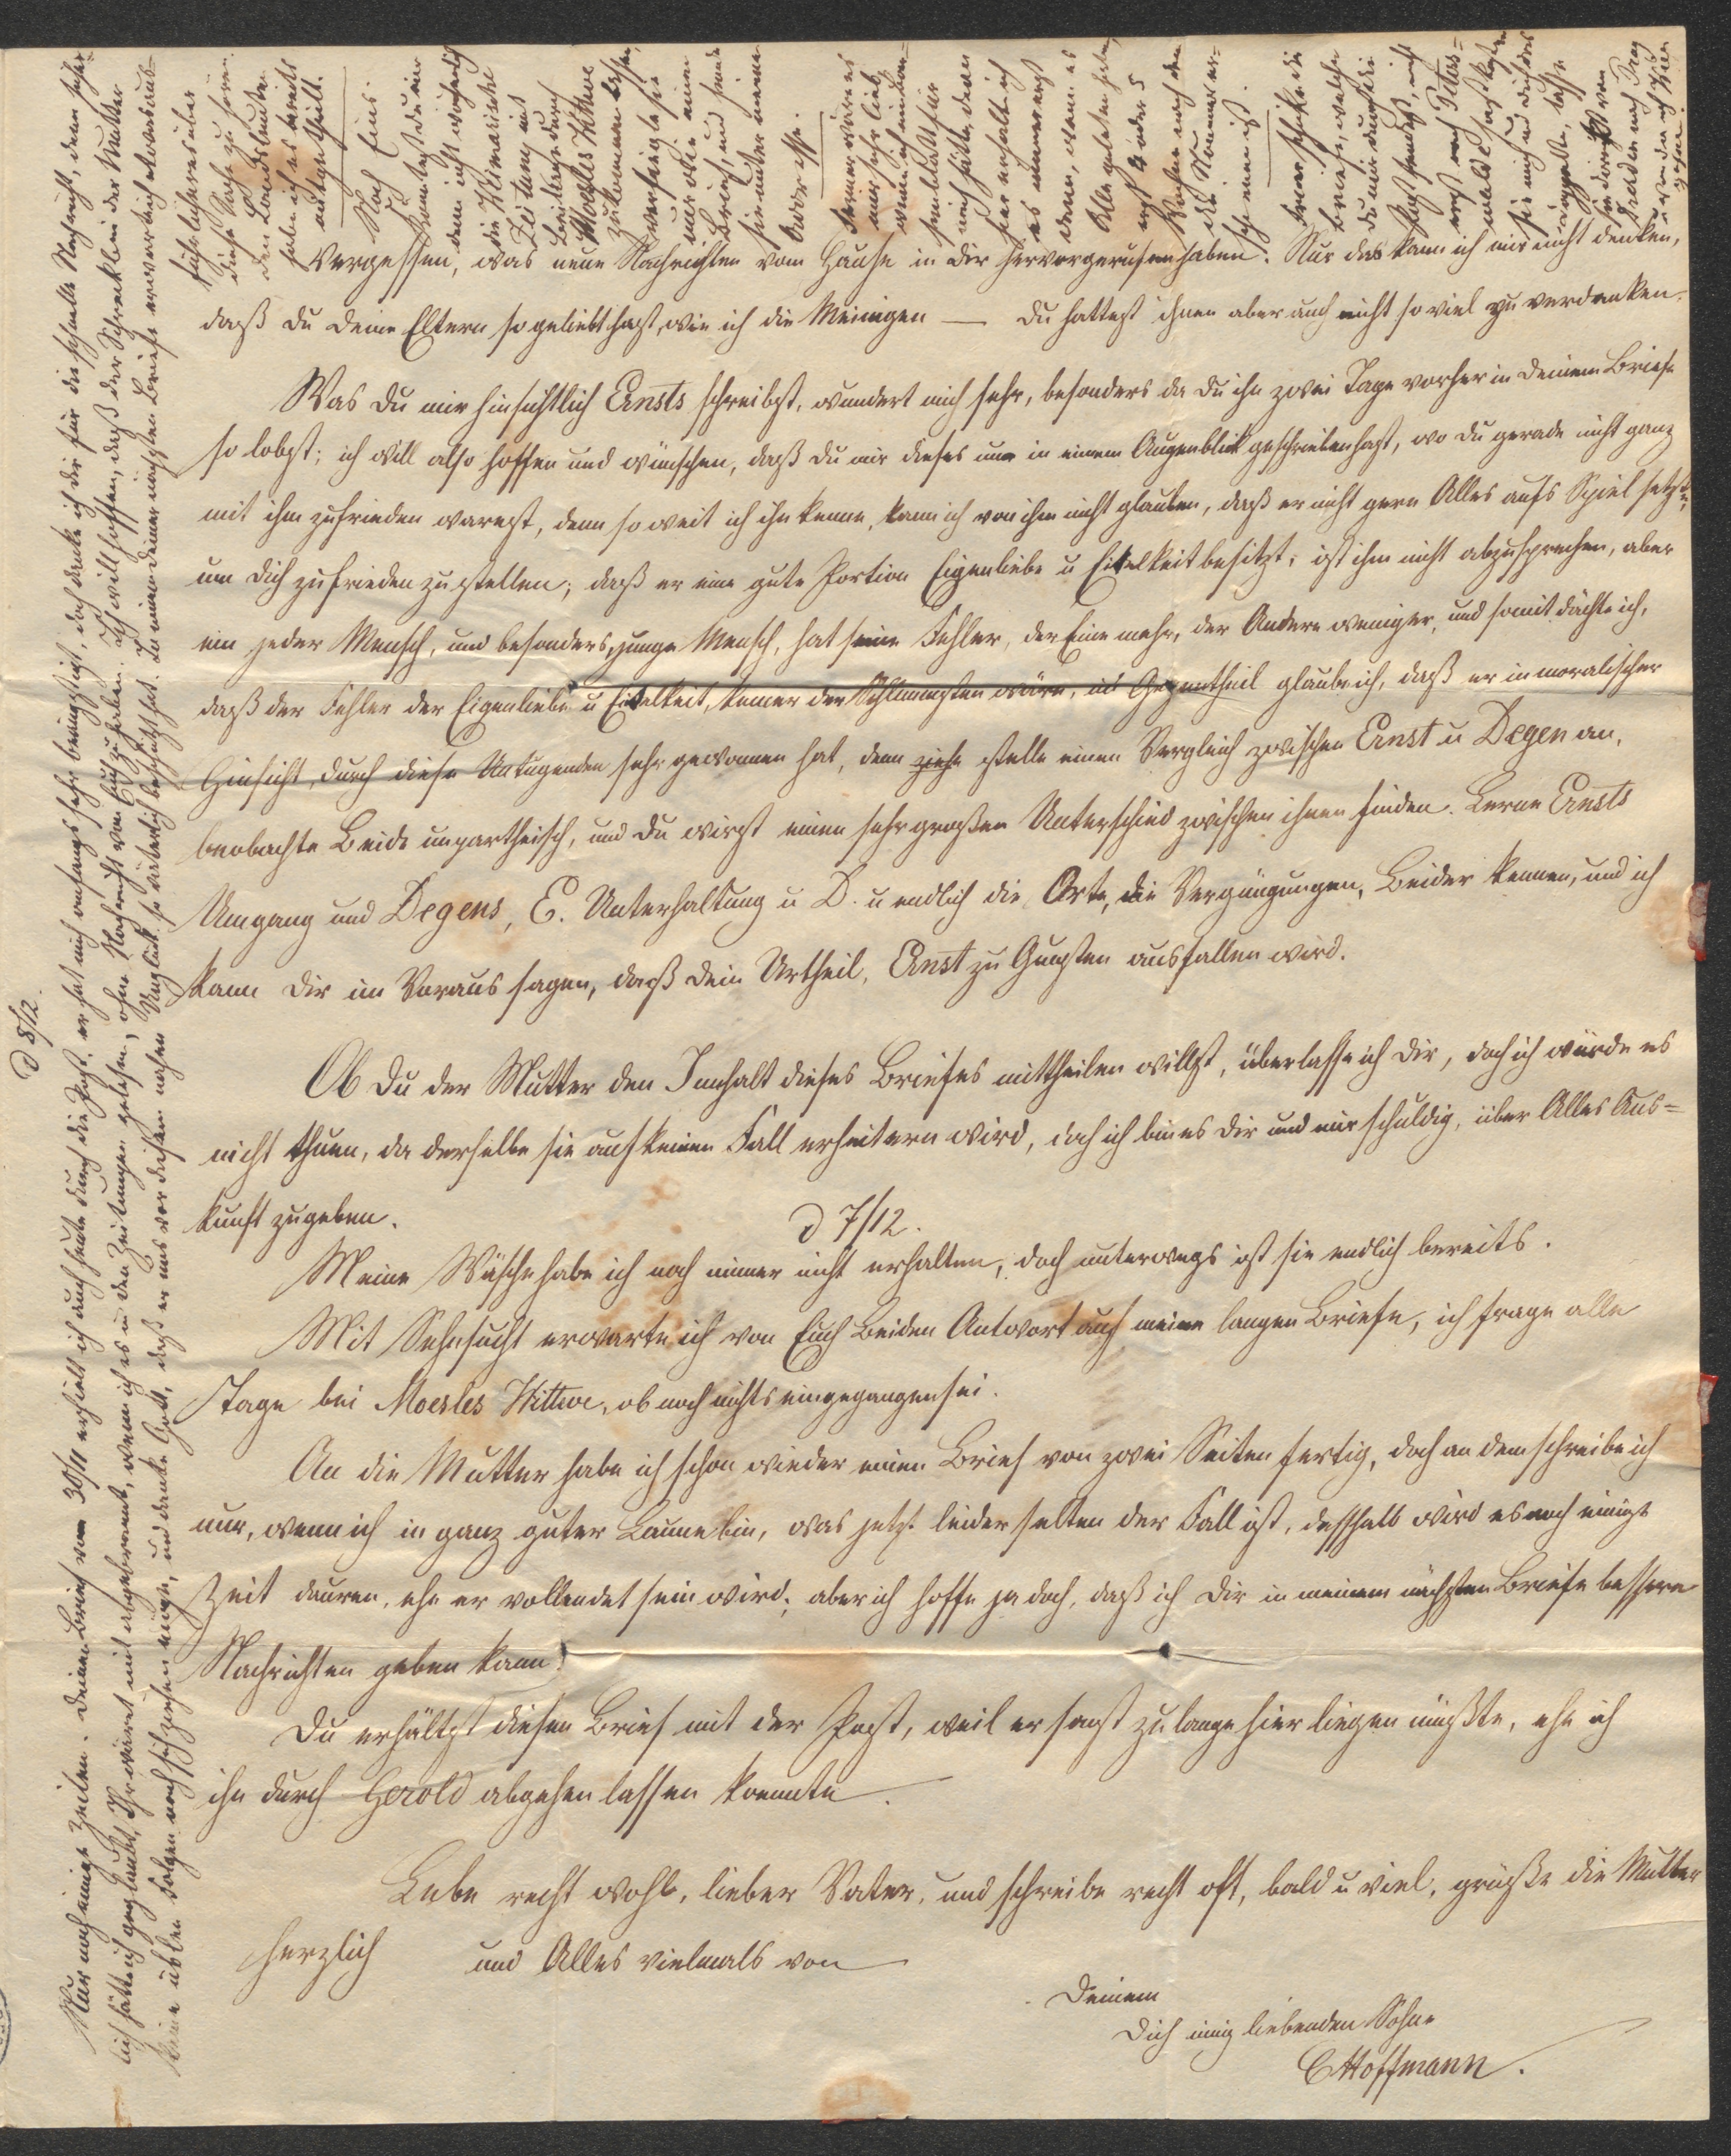 Vergessen, was neue Nachrichten vom Hause in Dir hervorgerufen haben. Nur das kann ich mir nicht denken,
daß Du Deine Eltern so geliebt hast, wie ich die Meinigen — Du hattest ihnen aber auch nicht so viel zu verdanken.
Was Du mir hinsichtlich Ernsts schreibst, wundert mich sehr, besonders da Du ihn zwei Tage vorher in Deinem Briefe
so lobst; ich will also hoffen und wünschen, daß Du mir dieses nur in einem Augenblick geschrieben hast, wo Du gerade nicht ganz
mit ihm zufrieden warest, denn so weit ich ihn kenne, kann ich von ihm nicht glauben, daß er nicht gern Alles aufs Spiel setzte,
um Dich zufrieden zu stellen; daß er eine gute Portion Eigenliebe u Eitelkeit besitzt, ist ihm nicht abzusprechen, aber
ein jeder Mensch, und besonders junge Mensch, hat seine Fehler, der Eine mehr, der Andere weniger, und somit dächte ich,
daß der Fehler der Eigenliebe u Eitelkeit, keiner der Schlimmsten wäre, im Gegentheil glaube ich, daß er in moralischer
Hinsicht, durch diese Untugenden sehr gewonnen hat, denn ziehe stelle einen Vergleich zwischen Ernst u Degen an,
beobachte Beide unpartheiisch, und Du wirst einen sehr großen Unterschied zwischen ihnen finden. Lerne Ernsts
Umgang und Degens, E. Unterhaltung u D. u endlich die Orte, die Vergnügungen, Beider kennen, und ich
kann Dir im Voraus sagen, daß Dein Urtheil, Ernst zu Gunsten ausfallen wird.
Ob Du der Mutter den Innhalt dieses Briefes mittheilen willst, überlasse ich Dir, doch ich würde es
nicht thuen, da derselbe sie auf keinen Fall erheitern wird, doch ich bin es Dir und mir schuldig, über Alles Aus=
kunft zu geben.
d 7/12.
Meine Wäsche habe ich noch immer nicht erhalten, doch unterwegs ist sie endlich bereits.
Mit Sehnsucht erwarte ich von Euch Beiden Antwort auf meine langen Briefe, ich frage alle
Tage bei Moesles Wittwe, ob noch nichts eingegangen sei.
An die Mutter habe ich schon wieder einen Brief von zwei Seiten fertig, doch an dem schreibe ich
nur, wenn ich in ganz guter Laune bin, was jetzt leider selten der Fall ist, desshalb wird es noch einige
Zeit dauern, ehe er vollendet sein wird; aber ich hoffe ja doch, daß ich Dir in meinem nächsten Briefe bessere
Nachrichten geben kann.
Du erhältst diesen Brief mit der Post, weil er sonst zu lange hier liegen müßte, ehe ich
ihn durch Gerold abgehen lassen konnte.
Lebe recht wohl, lieber Vater, und schreibe recht oft, bald u viel, grüße die Mutter
herzlich und Alles vielmals von
Deinem
Dich innig liebenden Sohne
CHoffmann.
d 8/12.
Nur noch einige Zeilen. Deinen Brief vom 30/11 erhielt ich auch heute durch die Post, er hat mich anfangs sehr beängstigt, doch danke ich Dir für die schnelle Nachricht, denn sicher=
lich hätte ich geglaubt, Ihr wäret mit abgebrannt, wenn ich es in den Zeitungen gelesen, ohne Nachricht von Euch zu haben. Ich will hoffen, daß der Schreck bei der Mutter
keine üblen Folgen nach sich ziehen möge, und danke Gott, daß er uns vor diesem nahen Unglück so väterlich beschützt hat. In einem Deiner nächsten Briefe erwarte ich etwas Aus=
führlicheres über
diese Sache zu hören.
den Landsleuten
habe ich es bereits
mitgetheilt.
Noch Eins.
Könntest Du mir
denn nicht wöchentlich
die Weimarische
Zeitung mit
Beilage durch
Moesles Wittwe
zukommen lassen,
versiegle sie
nur wie einen
Brief, und sende
sie unter meiner
Adresse.